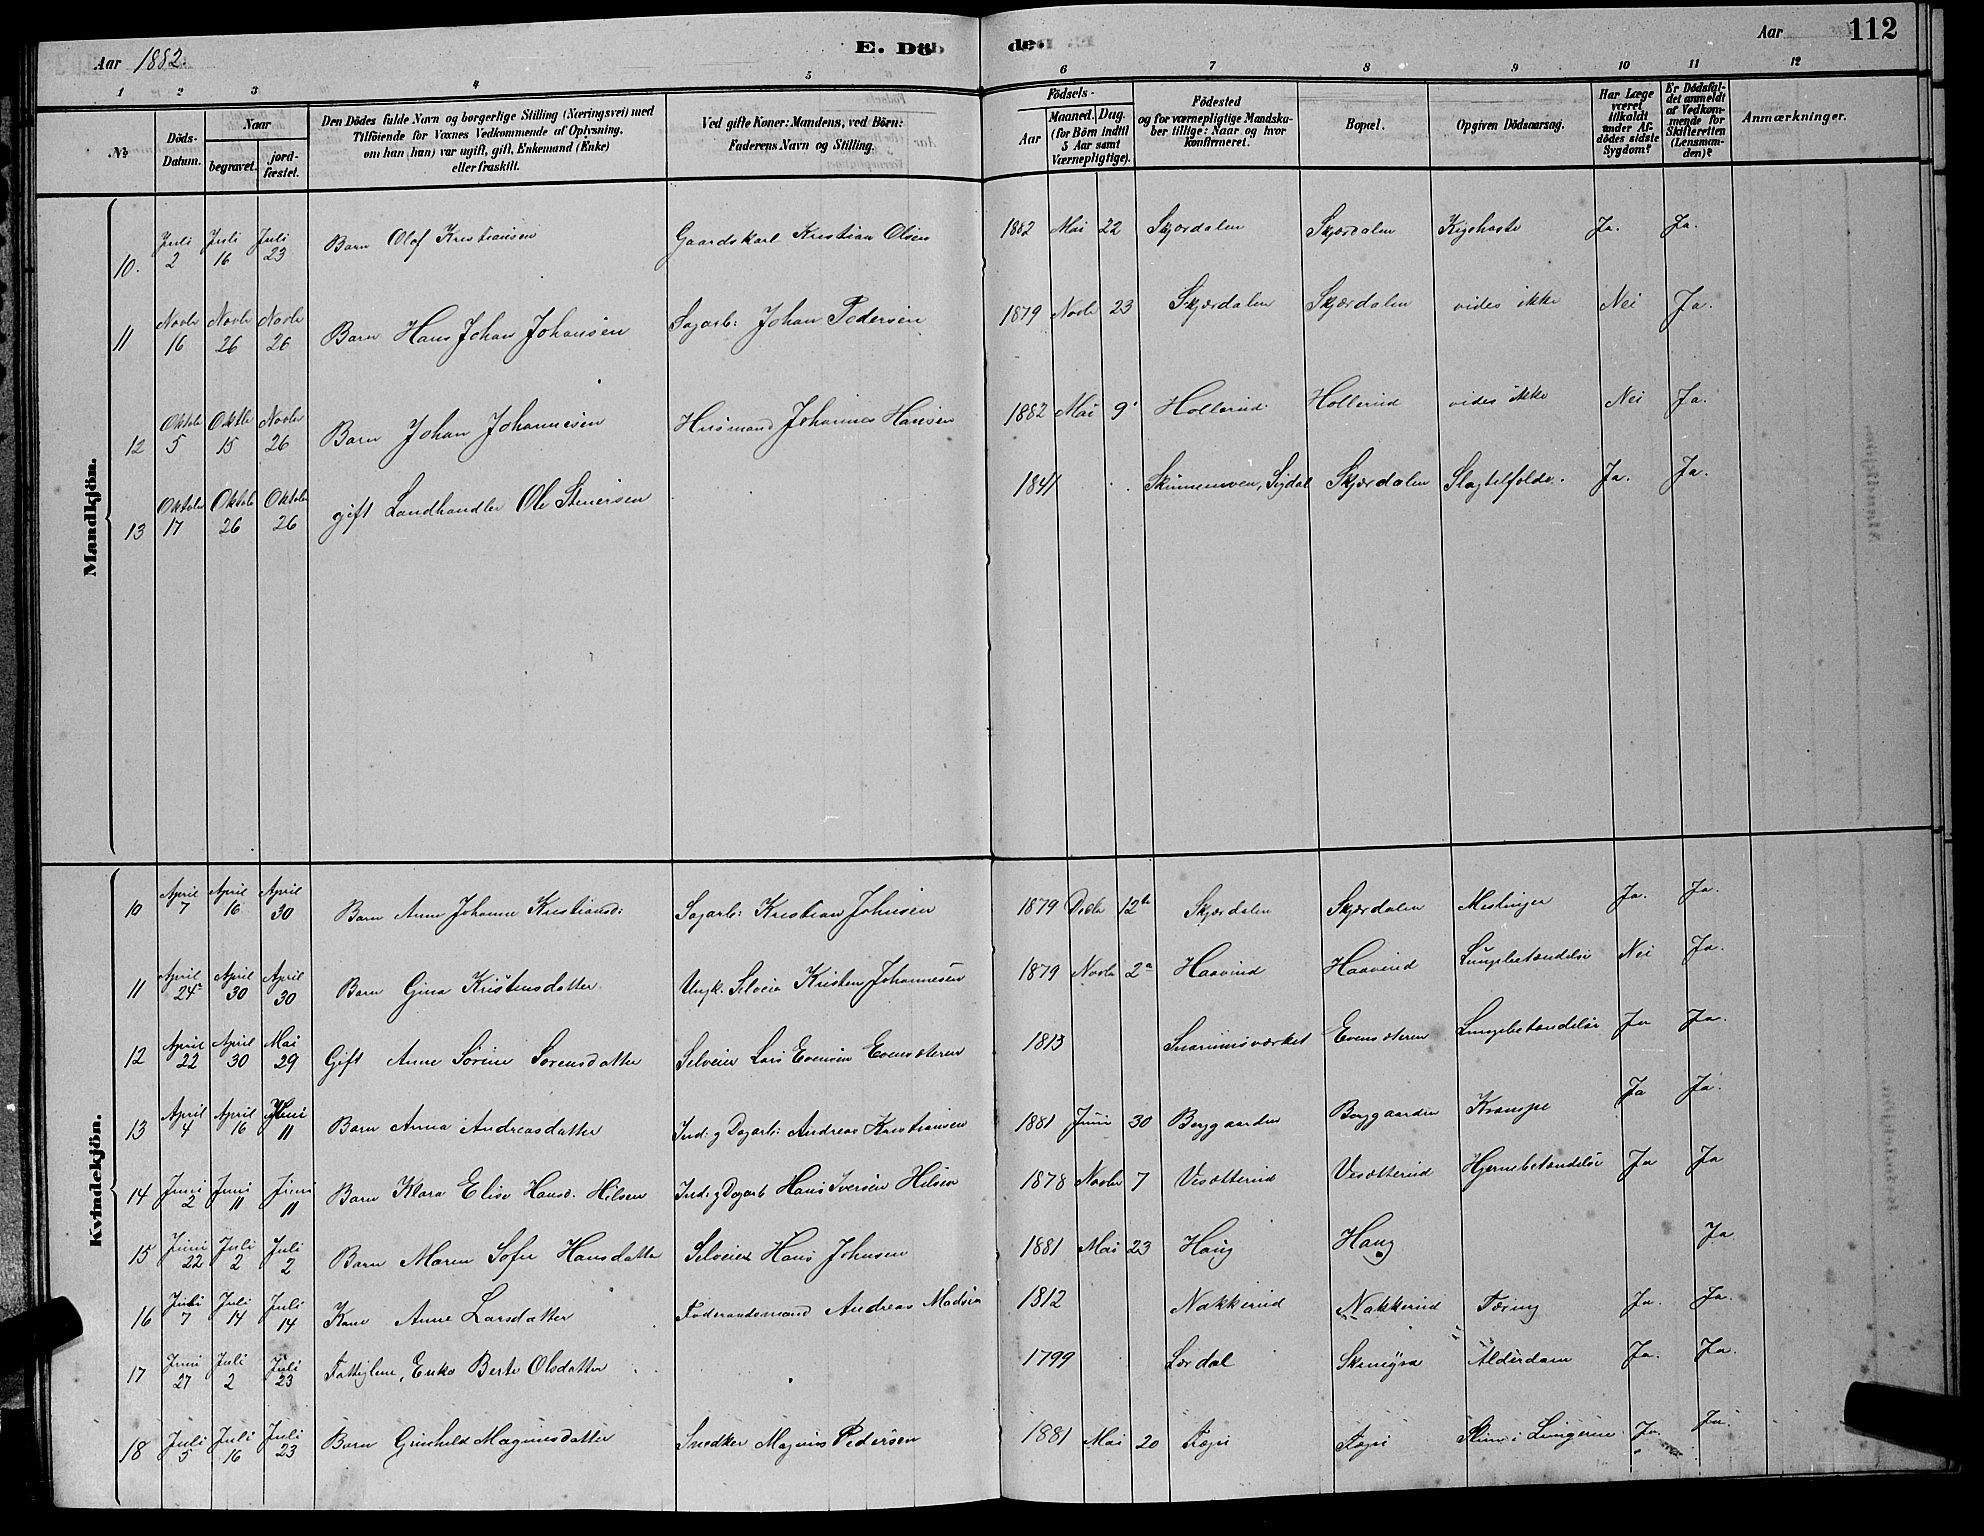 Aar 1882. E. Döbde. Aar 112
1 2 3 4 5 6 7 8 9 10 11 12
No. Döds-Datum. Naar begravet. jordfæstet. Den Dödes fulde Navn og borgerlige Stilling (Næringsvei) med Tilföiende for Voxnes Vedkommende af Oplysning. om han (hun) var ugift, gift, Enkemand (Enke) eller fraskilt. Ved gifte Koner: Mandens, ved Börn: Faderens Navn og Stilling. Födsels- Aar Maaned. Dag. (for Börn indtil 5 Aar samt Værnepligtige). Födested og for værnepligtige Mandskaber tillige: Naar og hvor konfirmeret. Bopæl. Opgiven Dödsaarsag. Har Læge været tilkaldt under Afdödes sidste Sygdom? Er Dödsfaldet anmeldt af Vedkommende for Skifteretten (Lensmanden)? Anmærkninger.
Mandkjön.
10. Juli 2 Juli 16 Juli 23 Barn Olaf Kristiansen Gaardskarl Kristian Olsen 1882 Mai 22 Skjærdalen Skjærdalen Kighoste Ja. Ja.
11 Novbr 16 Novbr 26 Novbr 26 Barn Hans Johan Johansen Sagarb: Johan Pedersen 1879 Novbr 23 Skjærdalen Skjærdalen vides ikke Nei Ja.
12 Oktober 5 Oktbr 15 Novbr 26 Barn Johan Johannesen Husmand Johannes Hansen 1882 Mai 9 Hollerud Hollerud vides ikke Nei Ja.
13 Oktober 17 Oktober 26 Oktober 26 gift Landhandler Ole Steiersen 1841 Sigdal Skjærdalen Slagtilfælde. Ja. Ja.
Kvindekjön.
10 April 7 April 16 April 30 Barn Anne Johanne Kristiansd: Sagarb: Kristian Johnsen 1879 Decbr 12te Skjærdalen Skjærdalen Meslinger Ja. Ja.
11 April 24 April 30 April 30 Barn Gina Kristensdatter Ungk. Selveier Kristen Johannesen 1879 Novbr 2 Haavind Haavind Lungebetændelse Nei Ja.
12 April 22 April 30 Mai 29 Gift Anne Sörine Sörensdatter Selveier Lars Evensen Evensæteren 1813 Snarumsværket Evensæteren Lungebetændelse Ja Ja.
13 April 4 April 16 Juni 11 Barn Anna Andreasdatter Ind: g Dagarb: Andreas Kristiansen 1881 Juni 30 Borggaarden Borggaarden Krampe Ja Ja.
14 Juni 2 Juni 11 Juni 11 Barn Klara Elise Hansd: Hilsen Ind: g Dagarb Hans Iversen Hilsen 1878 Novbr 7 Vesætterud Vesætterud Hjernebetændelse Ja Ja
15 Juni 22 Juli 2 Juli 2 Barn Maren Sofie Hansdatter Selveier Hans Johnsen 1881 Mai 23 Haug Haug Ja
16 Juli 7 Juli 14 Juli 14 Kone Anne Larsdatter Föderaadsmand Andreas Madsen 1812 Nakkerud Nakkerud Tæring Ja. Ja.
17 Juni 27 Juli 2 Juli 23 Fattiglem, Enke Berte Olsdatter 1799 Lærdal Alderdom Ja. Ja.
18 Juli 5 Juli 16 Juli 23 Barn Grinhild Magnusdatter Snedker Magnus Pedersen 1881 Mai 20 Slim i Lungerne Ja. Ja.